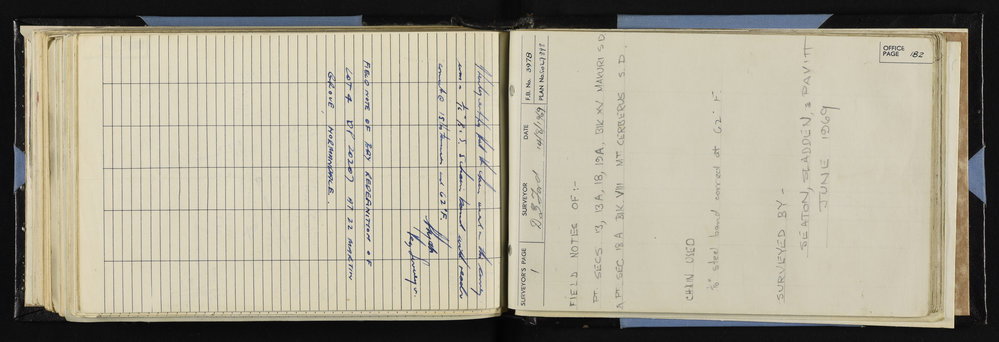 I hereby certify that the chain used in the survey
was a 1/8" R.S. 5 chain band and reads
correct @ 15 lb tension and 62°F.
Reg. Surveyor.
FIELD NOTE OF BDY REDEFINITION OF
LOT 4 DP 20207 AT 22 MARTIN
GROVE, NORMANDALE.
SURVEYOR'S PAGE 1
SURVEYOR
DATE 14/8/1969
F.B. No. 3978
PLAN No.
OFFICE PAGE 182
FIELD NOTES OF :-
PT. SECS. 13, 13A, 18, 19A, BLK XV MAKURI S.D
& PT. SEC 18A BLK VIII MT. CERBERUS S.D.
CHAIN USED
1/8" steel band correct at 62° F.
SURVEYED BY -
SEATON, SLADDEN & PAVITT
JUNE 1969